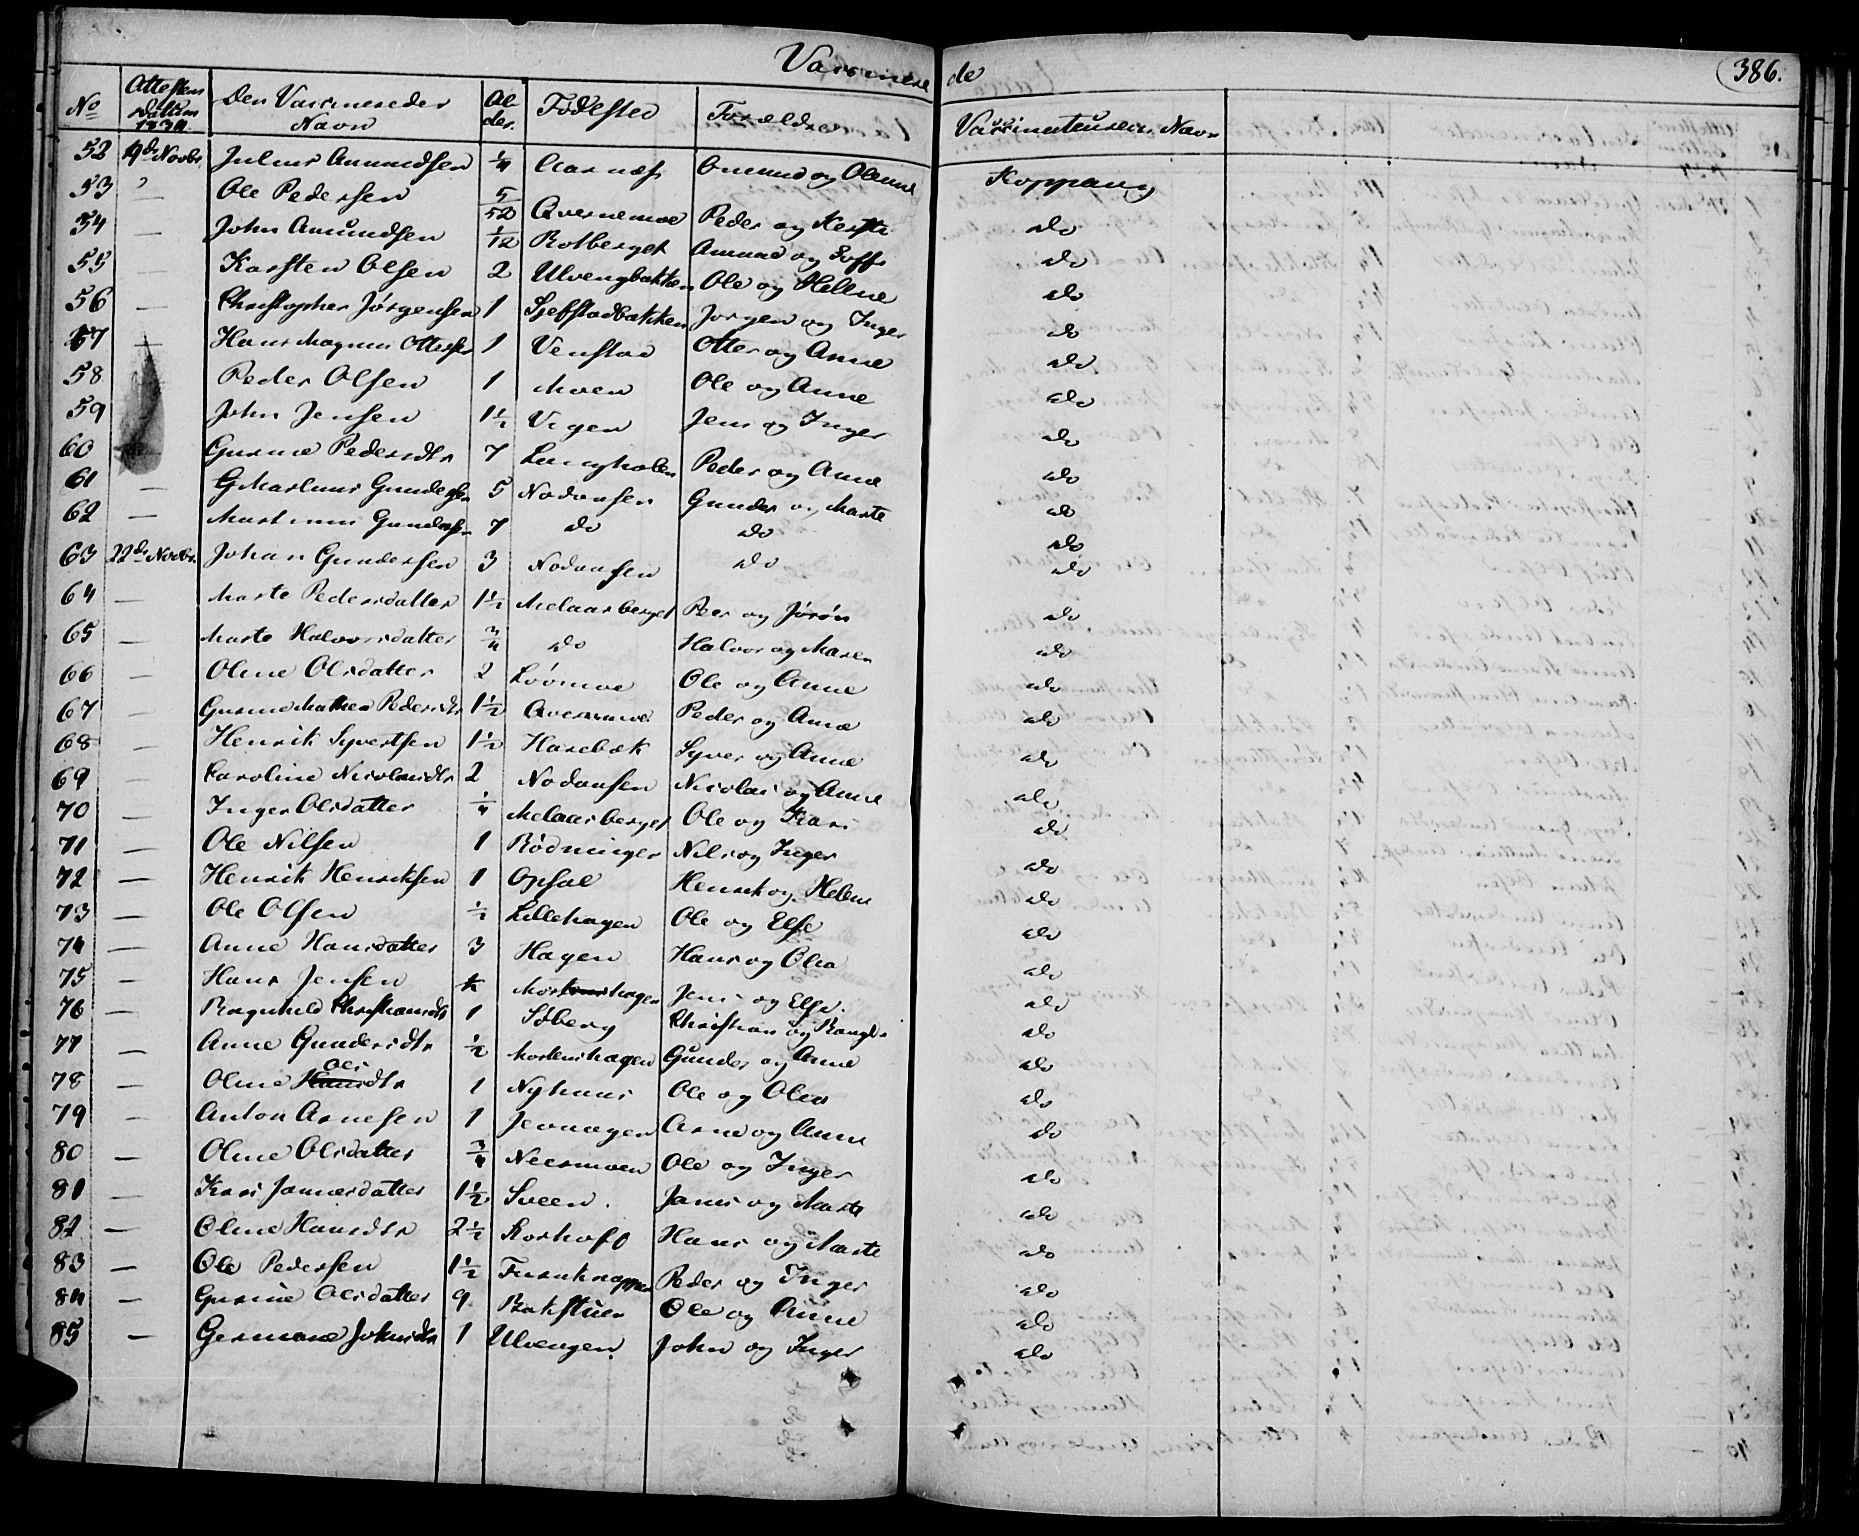 Vaccinerede
386.
No Attestens Datum 1834. Den Vaccineredes Navn Alder. Fødested Forældre Vaccinateurens Navn
52 19de Novbr. Julius Amundsen 1/4 Aarnæs Amund og Olenne Koppang
53 " Ole Pedersen 5/52 Qvernemoe Peder og Kersti do
54 — John Amundsen 1/12 Rotberget Amund og Soffi do
55 — Karsten Olsen 2 Ulvengbakken Ole og Hellene do
56 — Christopher Jørgensen 1 Sjefstadbakken Jørgen og Inger do
57 — Hans Magnus Ottersen 1 Venstad Otter og Anne do
58 Peder Olsen 1 Moen Ole og Anne do
59 John Jensen 1½ Vigen Jens og Inger do
60 Gurine Pedersdtr 7 Langholen Peder og Anne do
61 — G Marlinus Gundersen 5 Nodansen Gunder og Marte do
62 — Martinus Gundersen 7 do do do
63 22de Novbr. Johan Gundersen 3 Nodansen do do
64 — Marte Pedersdatter 1½ Melaasberget Peer og Jørøn do
65 — Marte Halvorsdatter 3/4 do Halvor og Maren do
66 — Oline Olsdatter 2 Løvmoe Ole og Anne do
67 — Gurine Mathea Pedersdtr 1½ Qvernmoe Peder og Anne do
68 — Henrik Syvertsen 1½ Harebæk Syver og Anne do
69 — Caroline Nicolaisdtr 2 Nodansen Nicolai og Anne do
70 — Inger Olsdatter 1/4 Melaasberget Ole og Kari do
71 — Ole Nilsen 1 Rødninger Nils og Inger do
72 — Henrik Henriksen 1 Opsal Henrik og Helene do
73 — Ole Olsen ½ Lillehagen Ole og Else do
74 — Anne Hansdatter 3 Hagen Hans og Olea do
75 — Hans Jensen ½ Mortenshagen Jens og Else. do
76 — Ragnhild Christiansdtr 1 Søberg Christian og Rangdi do
77 — Anne Gundersdtr ½ Mortenshagen Gunder og Anne do
78 — Oline Olsdtr 1 Nyhuus Ole og Olea do
79 — Anton Arnesen 1 Jevnagen Arne og Anne do
80 — Oline Olsdatter 3/4 Neermoen Ole og Inger do
81 — Kari Jansdatter 1½ Sveen. Jans og Marte do
82 — Oline Hansdtr 2½ Korhoff Hans og Marte do
83 — Ole Pedersen 1½ Furuknappen Peder og Inger do
84 — Gurine Olsdatter 9 Bakstuen Ole og Anne do
85 — Germane Johnsdtr 1 Ulvengen John og Inger do